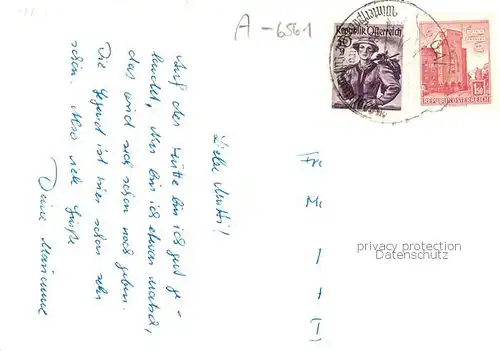 A-6561
Republik Österreich
1.50
REPUBLIK ÖSTERREICH
Liebe Mutti!
Auf der Hütte bin ich gut ge-
landet, aber bin ich etwas matsch,
das wird sich schon noch geben.
Die Gegend ist hier schon sehr
schön. Also viele Grüße
Deine Marianne
Fr
M
privacy protection
Datenschutz